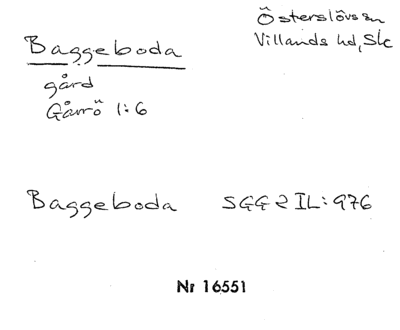 Baggeboda
Österslövs sn
Villands hd, Sk
gård
Gårrö 1:6
Baggeboda SGG 2 IL:976
Nr 16551